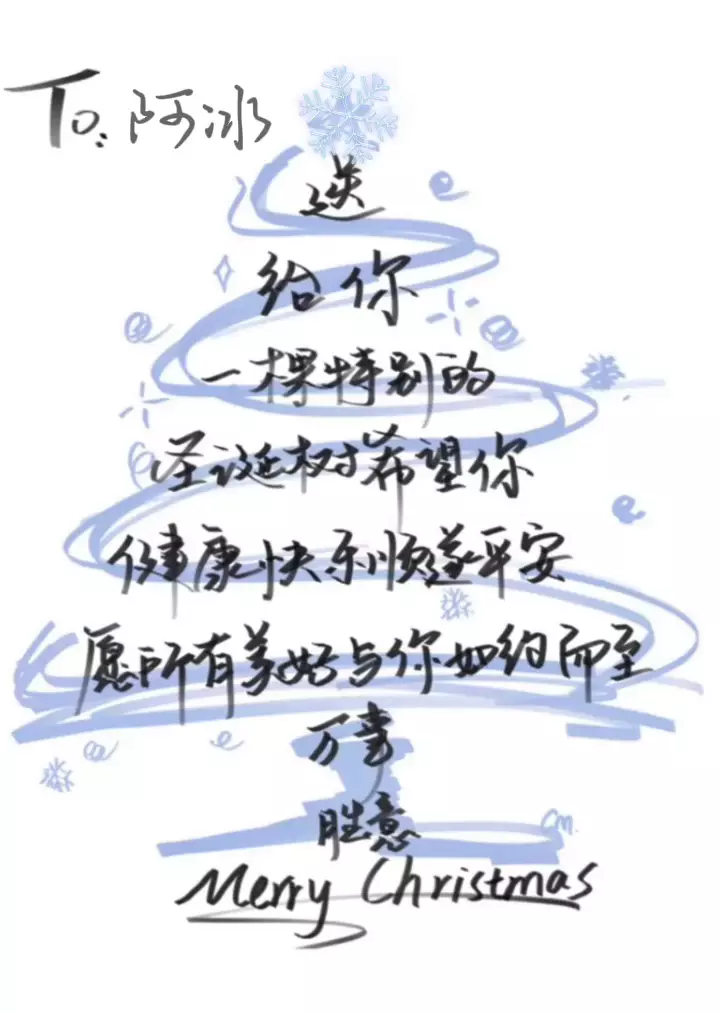 To: 阿冰
送
给你
一棵特别的
圣诞树希望你
健康快乐顺遂平安
愿所有美好与你如约而至
万事
胜意
CM.
Merry Christmas